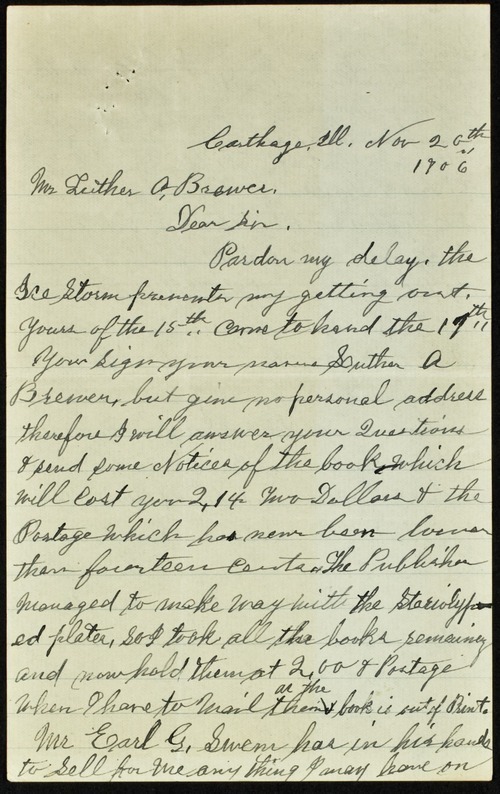 Carthage, Ill. Nov 20th
1906
Mr Luther A, Brewer.
Dear Sir.
Pardon my delay. the
Ice Storm prevented my getting out.
Yours of the 15th Came to hand the 17th
You sign your name Luther A
Brewer, but give no personal address
therefore I will answer your Questions
& send some Notices of the book, which
will Cost you 2,14 Two Dollars & the
Postage which has never been lower
than fourteen Cents. The Publisher
managed to make way with the Steriotyp
ed plates, So I took all the books remaining
and now hold them at 2,00 & Postage
as the
When I have to Mail them book is out of Print.
Mr Earl G. Swem has in his hands
to Sell for me any thing I may have on